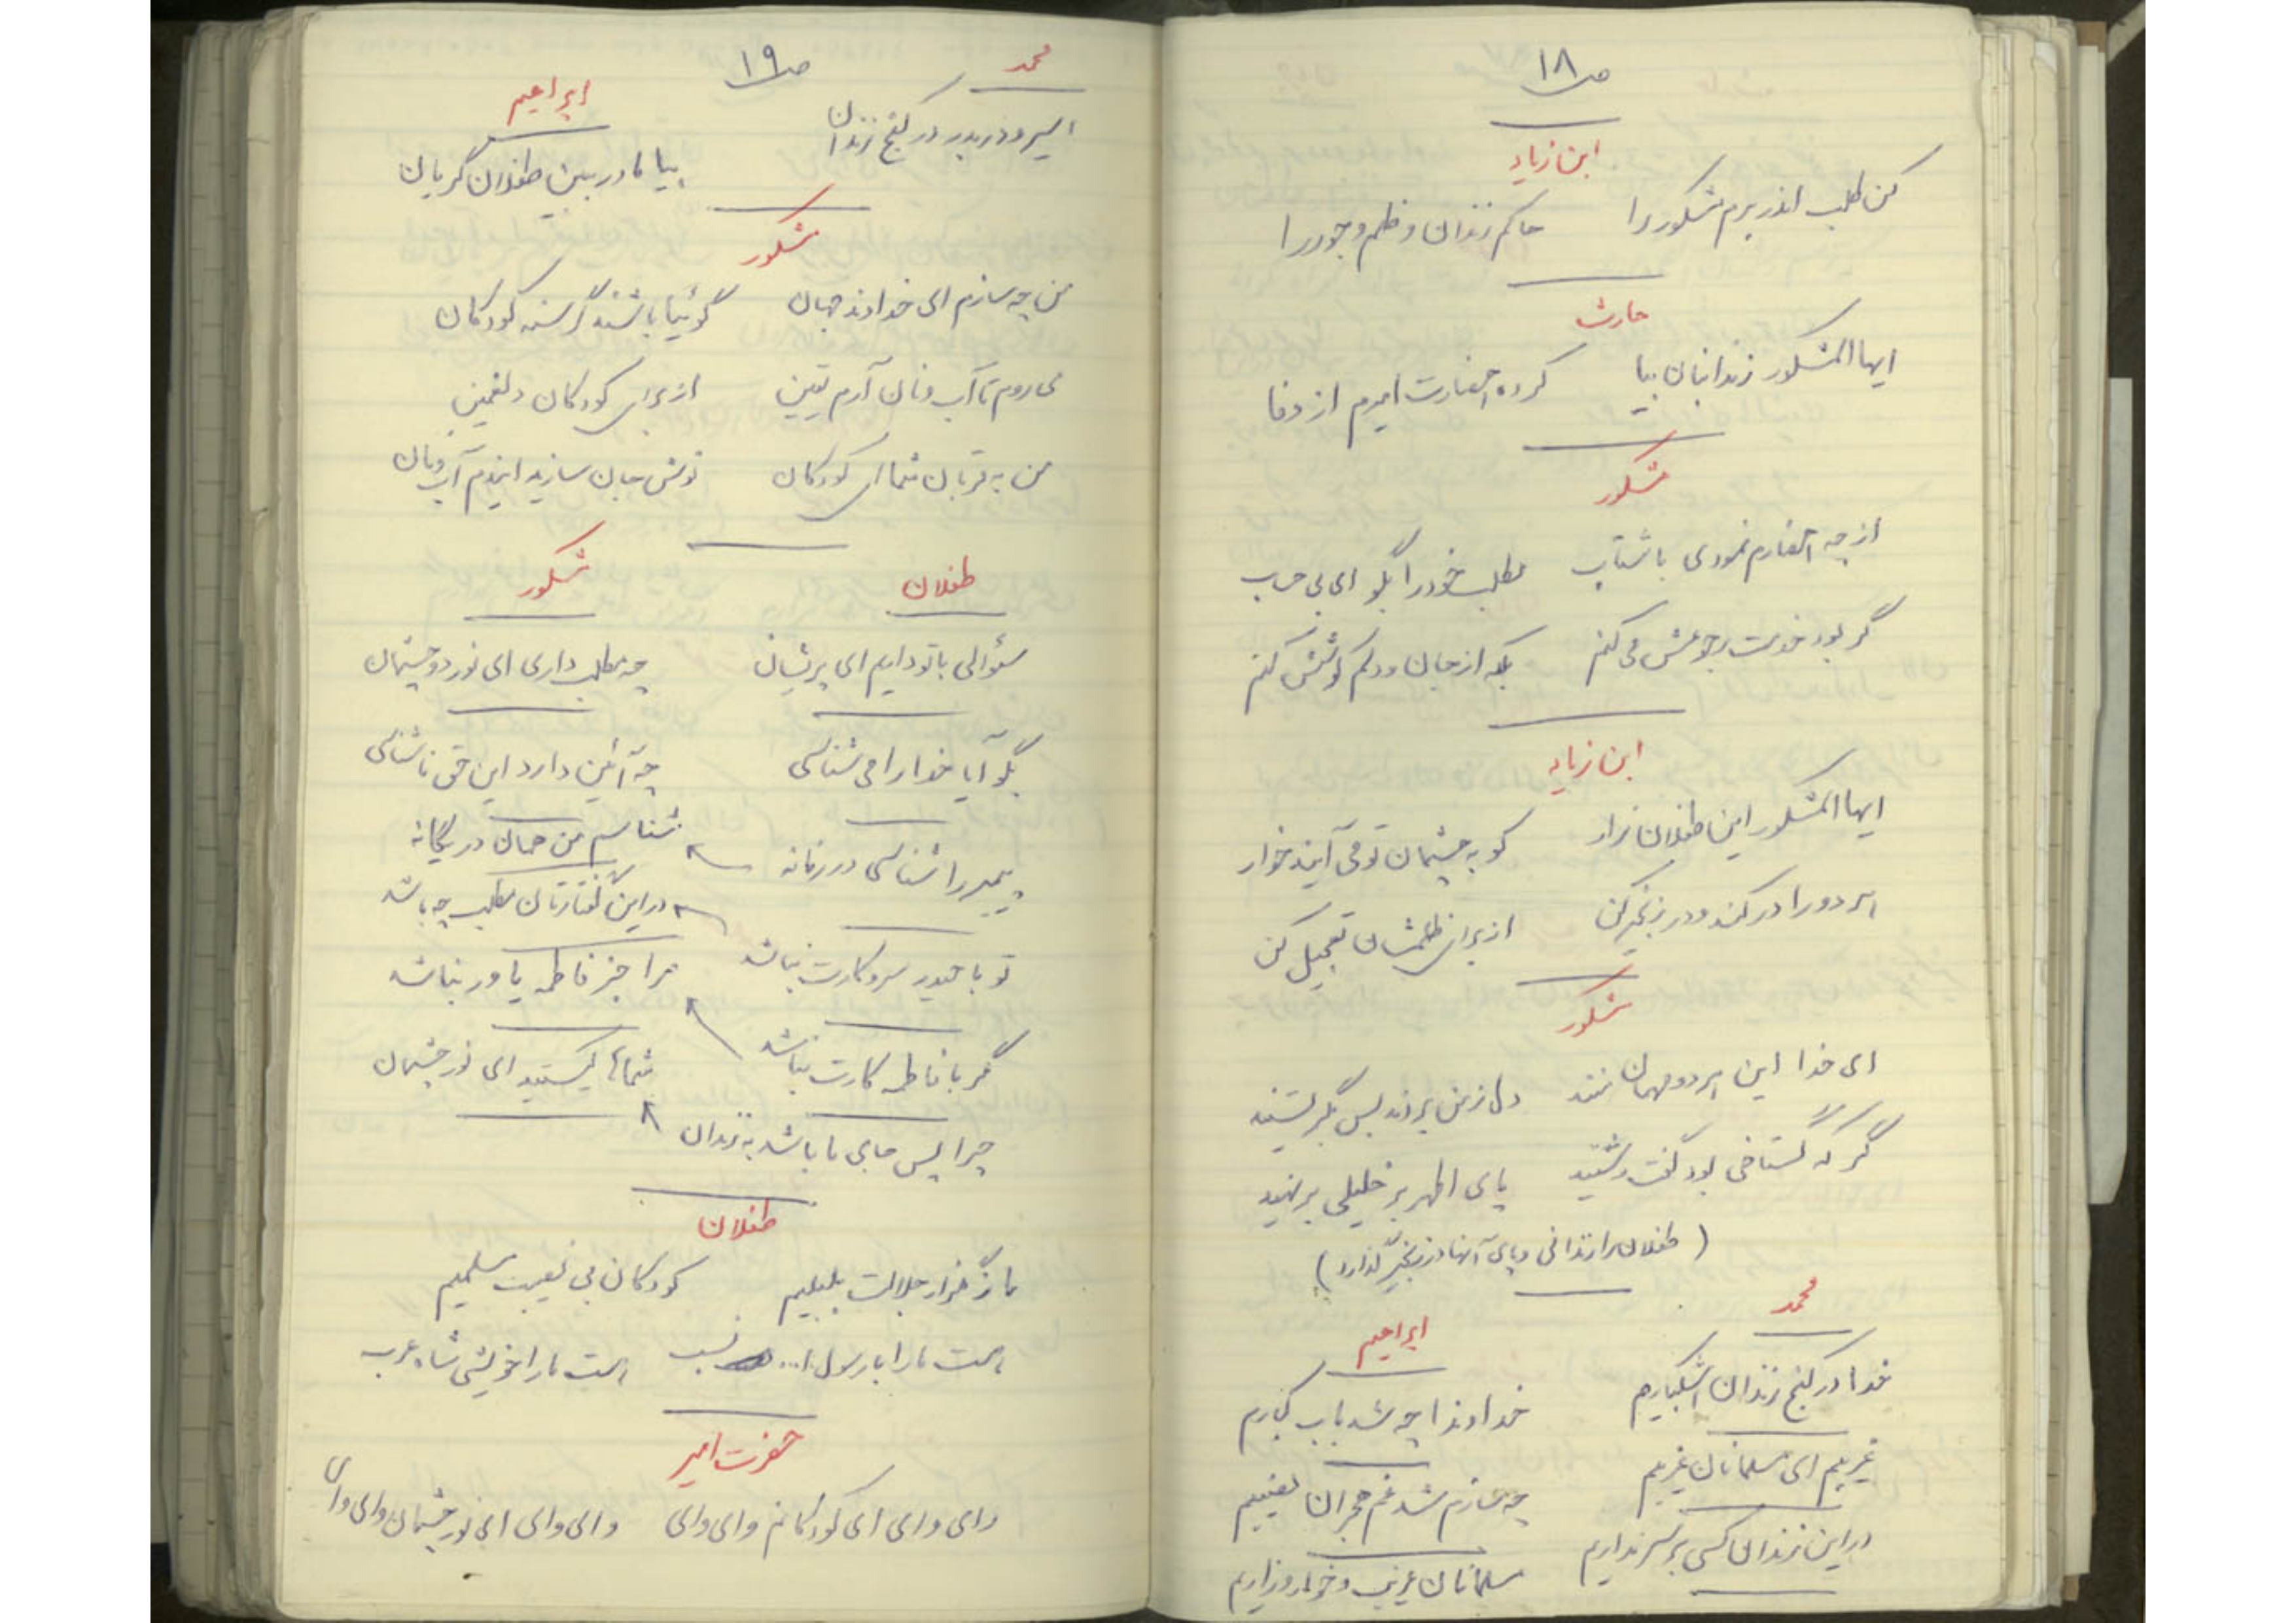 ص ۱۸
ابن زیاد
کن طلب اندر برم مشکور را    حاکم زندان و ظلم و جور را
حارث
ایها المشکور زندانبان بیا    کرده احضارت امیرم از وفا
مشکور
از چه احضارم نمودی با شتاب    مطلب خود را بگو ای بی حساب
گر بود خدمت رجوعش می کنم    بلکه از جان و دلم گوشش کنم
ابن زیاد
ایها المشکور این طفلان زار    کو به چشمان تو می آیند خوار
هر دو را در کند و در زنجیر کن    از برای ظلمشان تعجیل کن
مشکور
ای خدا این هر دو مهمان منند    دل ز من بردند بس بگریستند
گر که گستاخی بود گفت و شنید    پای اطهر بر خلیلی بر نهید
(طفلان را زندانی و پای آنها در زنجیر گذارد)
محمد    ابراهیم
خدا در کنج زندان اشکبارم    خداوندا چه شد باب کبارم
غریبم ای مسلمانان غریبم    چه سازم شد غم هجران نصیبم
در این زندان کسی بر سر نداریم    مسلمانان غریب و خوار و زاریم
ص ۱۹
محمد    ابراهیم
اسیر و در بدر در کنج زندان    بیا مادر ببین طفلان گریان
مشکور
من چه سازم ای خداوند جهان    گوئیا باشند گرسنه کودکان
می روم تا آب و نان آرم یقین    از برای کودکان دلغمین
من به قربان شما ای کودکان    نوش جان سازید ایندم آب و نان
طفلان    مشکور
سئوالی با تو دارم ای پریشان    چه مطلب داری ای نور دو چشمان
بگو آیا خدا را می شناسی    چه آئین دارد این حق ناشناسی
پیمبر را شناسی در زمانه    شناسم من همان در یگانه
تو با حیدر سر و کارت نباشد    در این گفتارتان مطلب چه باشد
گر با فاطمه کارت نباشد    مرا جز فاطمه یاور نباشد
چرا پس جای ما باشد به زندان    شماها کیستید ای نور چشمان
طفلان
ما ز گلزار جلالت بلبلیم    کودکان بی نصیب مسلمیم
هست ما را با رسول ا... نسب    هست ما را خویشی شاه عرب
حضرت امیر
وای وای ای کودکانم وای وای    وای وای ای نور چشمان وای وای